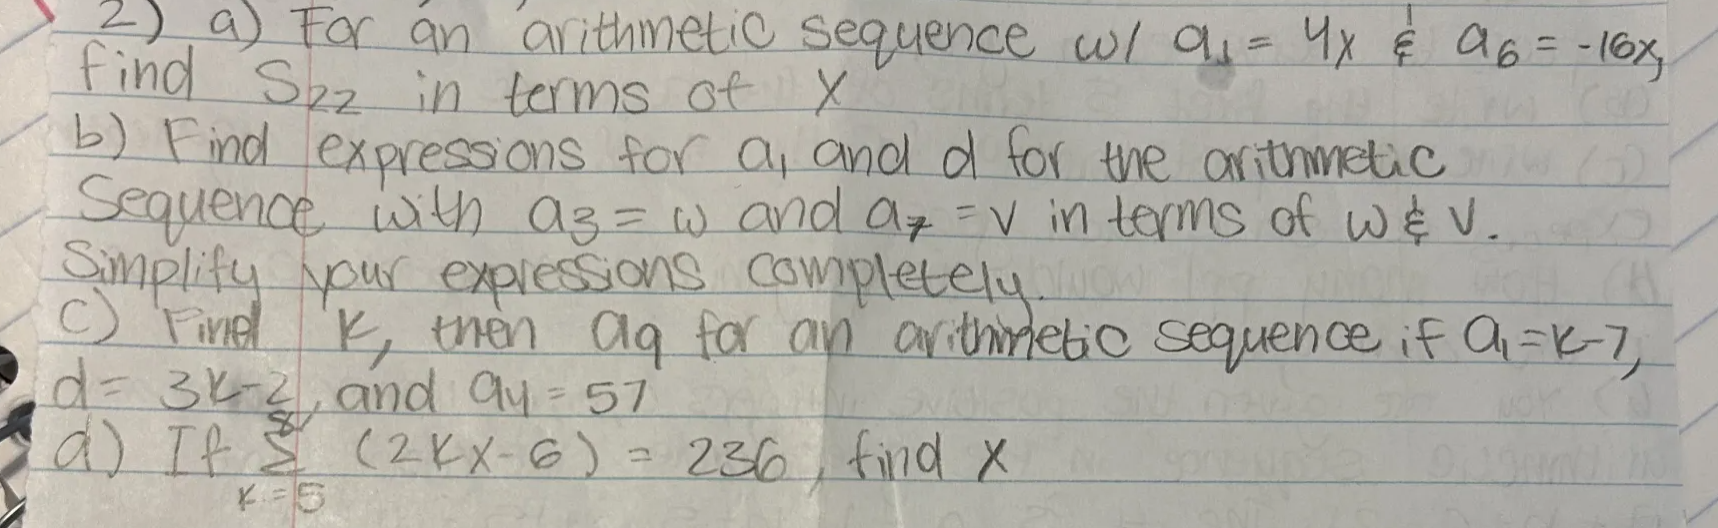 2) a) For an arithmetic sequence w/ a₁ = 4x & a₆ = -16x,
find S₂₂ in terms of x
b) Find expressions for a₁ and d for the arithmetic
Sequence with a₃ = w and a₇ = v in terms of w & v.
Simplify your expressions completely.
c) Find k, then a₉ for an arithmetic sequence if a₁ = k-7,
d = 3k-2, and a₄ = 57
8
d) If Σ (2kx-6) = 236, find x
k=5